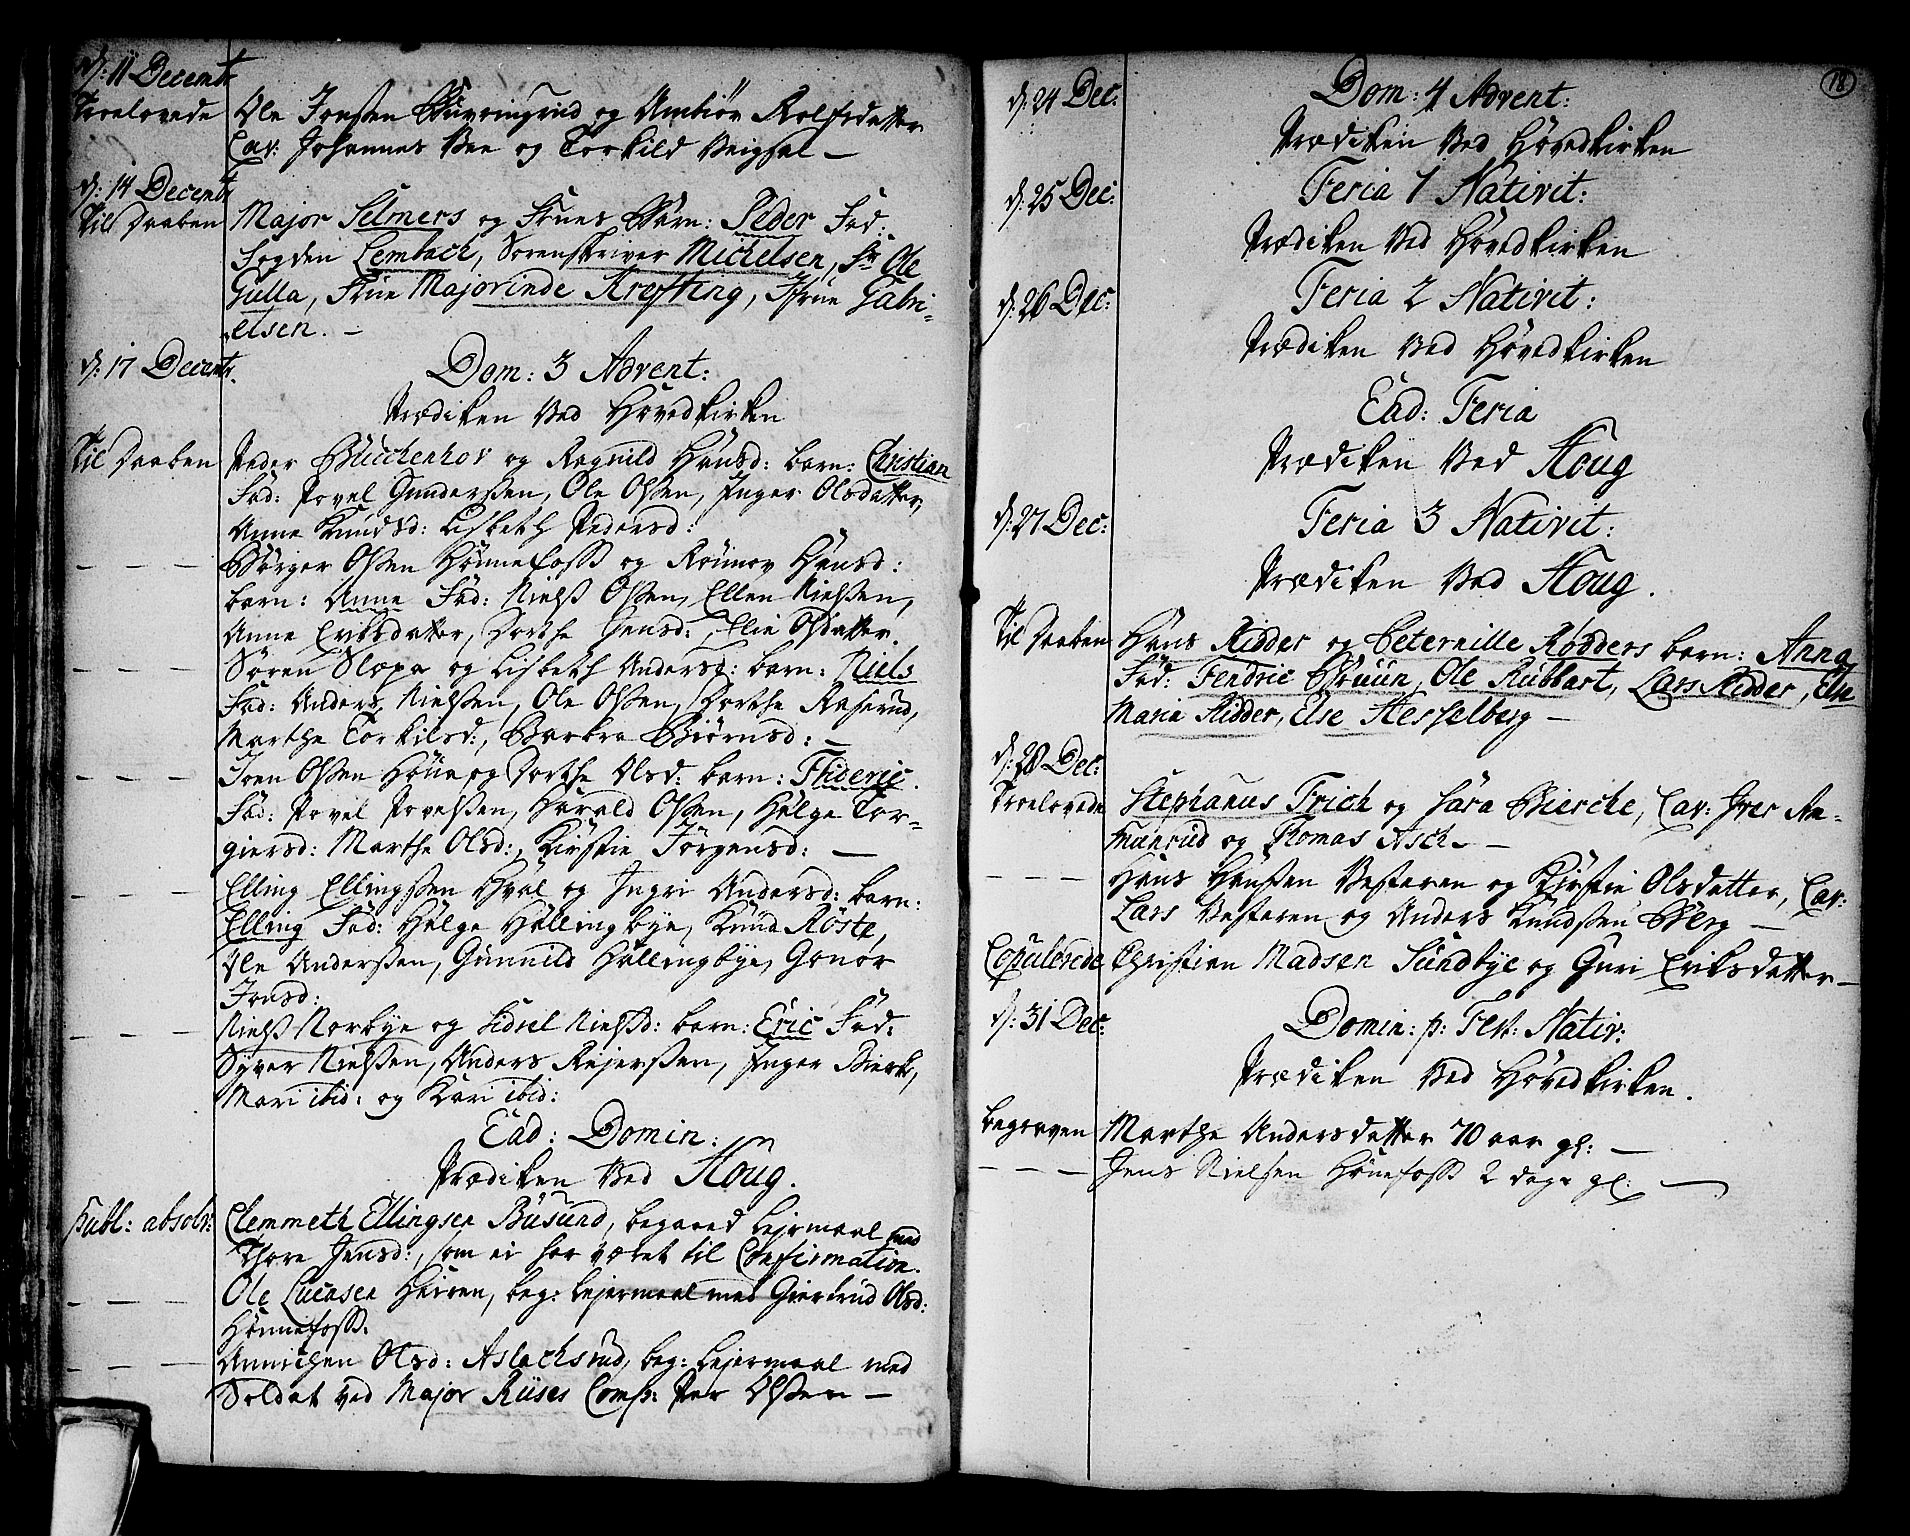 d: 11 Decembr
Troelovede Ole Jonssen og Ambiør Rolfsdatter
Cav: Johannes Bee og Torkild Veighal –
d: 14 Decembr
Til Daaben Major Selmers og Frues Børn: Peder Fad:
Fogden Lembach, Sorenskriver Michelsen, Sr Ole
Gulla, Frue Majorinde Krefting, Frue Gabri-
elsen. –
d: 17 Decembr. Dom: 3 Advent:
Prædiken Ved Hovedkirken
Til Daaben Peder Buchenhov og Ragnild Hansd: barn: Christian
Fad: Povel Gunderssen, Ole Olssen, Inger Olsdatter,
Anne Knudsd: Lisbeth Pedersd:
– – – Børger Olssen Hønnefoss og Rønnov Hansd:
barn: Anne Fad: Niels Olssen, Ellen Nielssen,
Anne Eriksdatter, Dorthe Jensd: Elie Olsdatter.
– – – Søren Slopa og Lisbeth Andersd: barn: Niels
Fad: Anders Nielssen, Ole Olssen, Dorthe Raserud,
Marthe Torkilsd:, Barbra Biørnsd: –
– – – Joen Olssen Houe og Dorthe Olsd: barn: Frideric.
Fad: Povel Povelssen, Harald Olssen, Helge Tor-
giersd: Marthe Olsd:, Kirstie Jørgensd: –
– – – Elling Ellingssen Hval og Ingri Andersd: barn:
Elling Fad: Helge Hallingbye, Knud Røste,
Ole Anderssen, Gunnild Hallingbye, Gonor
Jonsd:
– – – Niels Norbye og Sidsel Nielsd: barn: Eric Fad:
Syver Nielssen, Anders Rejerssen, Inger Bierke,
Mari ibid: og Kari ibid:
Ead: Domin:
Prædiken Ved Houg.
Publ: absolv: Clemmeth Ellingsen Busund, begaaed Lejermaal med
Thore Jensd:, som ei har været til Confirmation.
– – – Ole Lucasen Heiren, beg: Lejermaal med Giertrud Olsd:
Hønnefoss.
– – – Annichen Olsd: Aslachsrud, beg: Lejermaal med
Soldat ved Major Riises Comp: Per Olssen –
18
d: 24 Dec: Dom: 4 Advent:
Prædiken Ved Hovedkirken
d: 25 Dec: Feria 1 Nativit:
Prædiken Ved Hovedkirken
d: 26 Dec: Feria 2 Nativit:
Prædiken Ved Hovedkirken
Ead: Feria
Prædiken Ved Houg
d: 27 Dec: Feria 3 Nativit:
Prædiken Ved Houg.
Til Daaben Hans Ridder og Peternille Rødders barn: Anna
Fad: Fendric Bruun, Ole Rubbart, Lars Ridder, Else
Maria Ridder, Else Hesselberg –
d: 28 Dec:
Troelovede Stephanus Frich og Sara Bierche, Cav: Iver Aa-
munrud og Thomas Asch. –
– – – Hans Hanssen Vesteren og Kirstie Olsdatter, Cav:
Lars Vesteren og Anders Knudssen Berg –
Copulerede Christian Madsen Sundbye og Guri Eriksdatter –
d: 31 Dec: Domin: p: Fest: Nativ:
Prædiken Ved Hovedkirken.
begraven Marthe Andersdatter 70 aar gl: –
– – – Jens Nielsen Hønefoss 2 dage gl: –